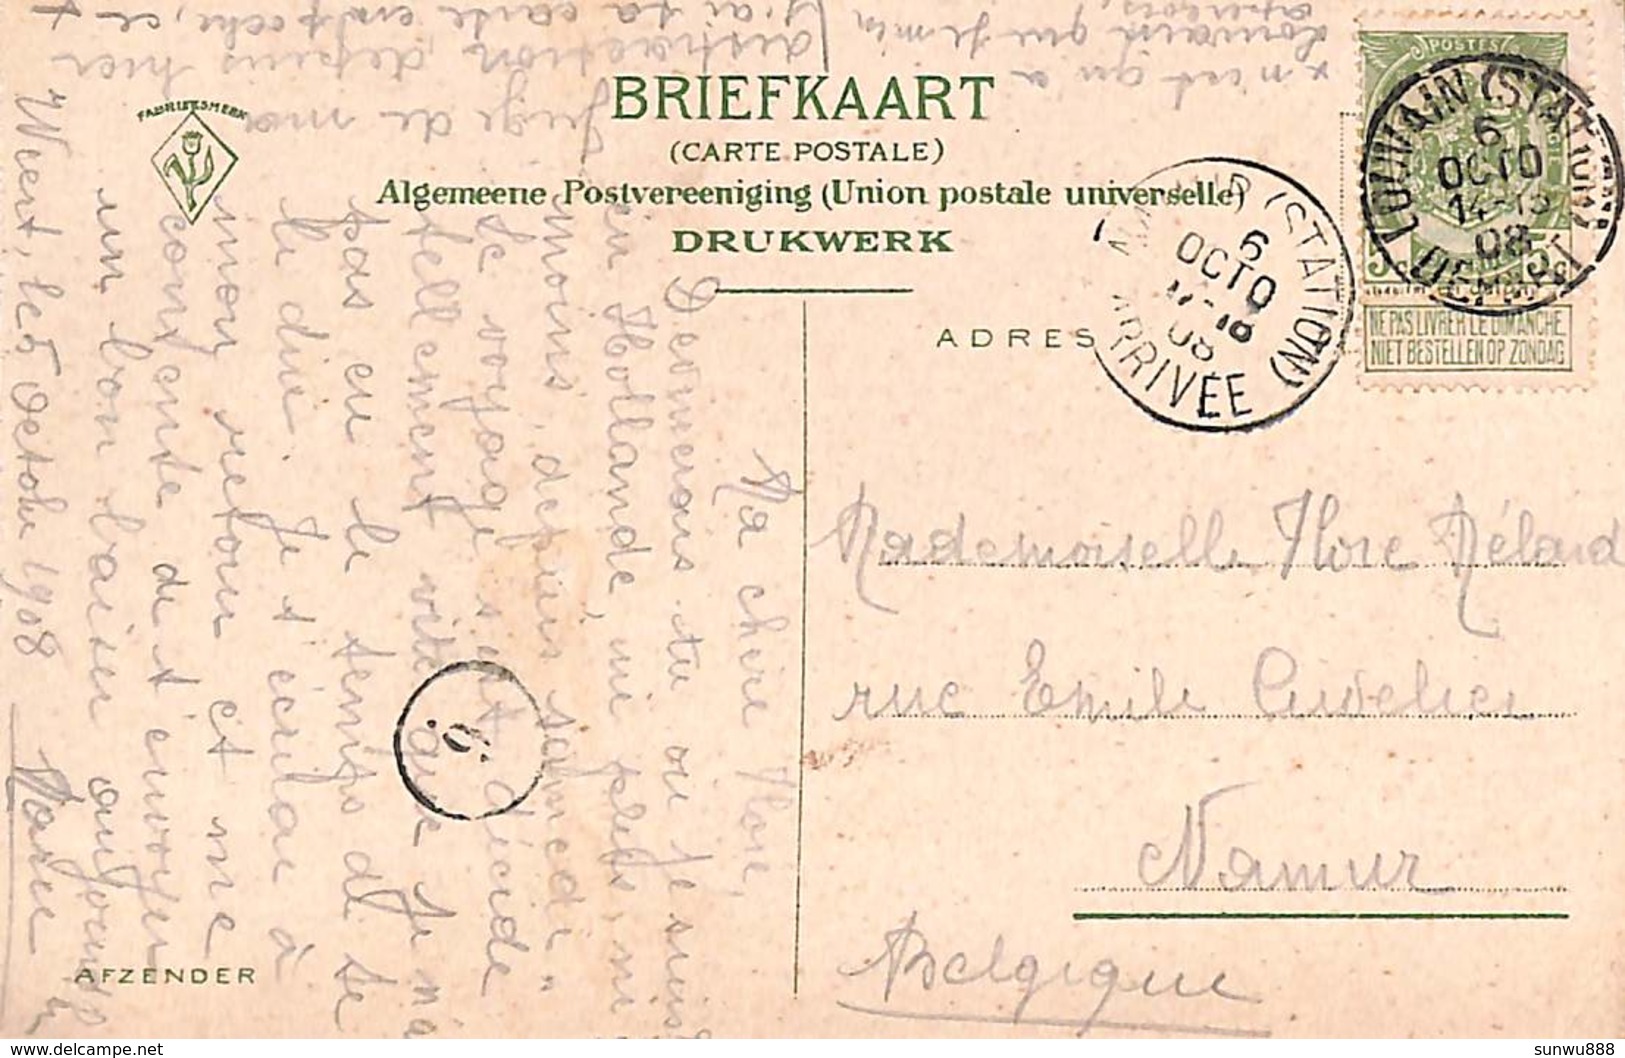 BRIEFKAART
(CARTE POSTALE)
Algemeene Postvereeniging (Union postale universelle)
DRUKWERK
FABRIEKSMERK
ADRES
AFZENDER
POSTES
NE PAS LIVRER LE DIMANCHE
NIET BESTELLEN OP ZONDAG
LOUVAIN (STATION)
6
OCTO
14-15
08
DEPART
NAMUR (STATION)
6
OCTO
08
ARRIVÉE
6
Mademoiselle Flore Mélard
rue Emile Cuvelier
Namur
Belgique
Weert, le 5 Octobre 1908
Ma chère Flore,
Devinerais tu où je suis?
en Hollande, ni plus, ni
moins, depuis samedi.
Le voyage s'est décidé
tellement vite que je n'ai
pas eu le temps de te
le dire. Je t'écrirai à
mon retour et me
contente de t'envoyer
un bon baiser aujourd'h
Marie
Juge de ma
distraction, depuis hier
j'ai ta carte en poche, et
x n'est qu'à
Louvain que je m'en
aperçois.